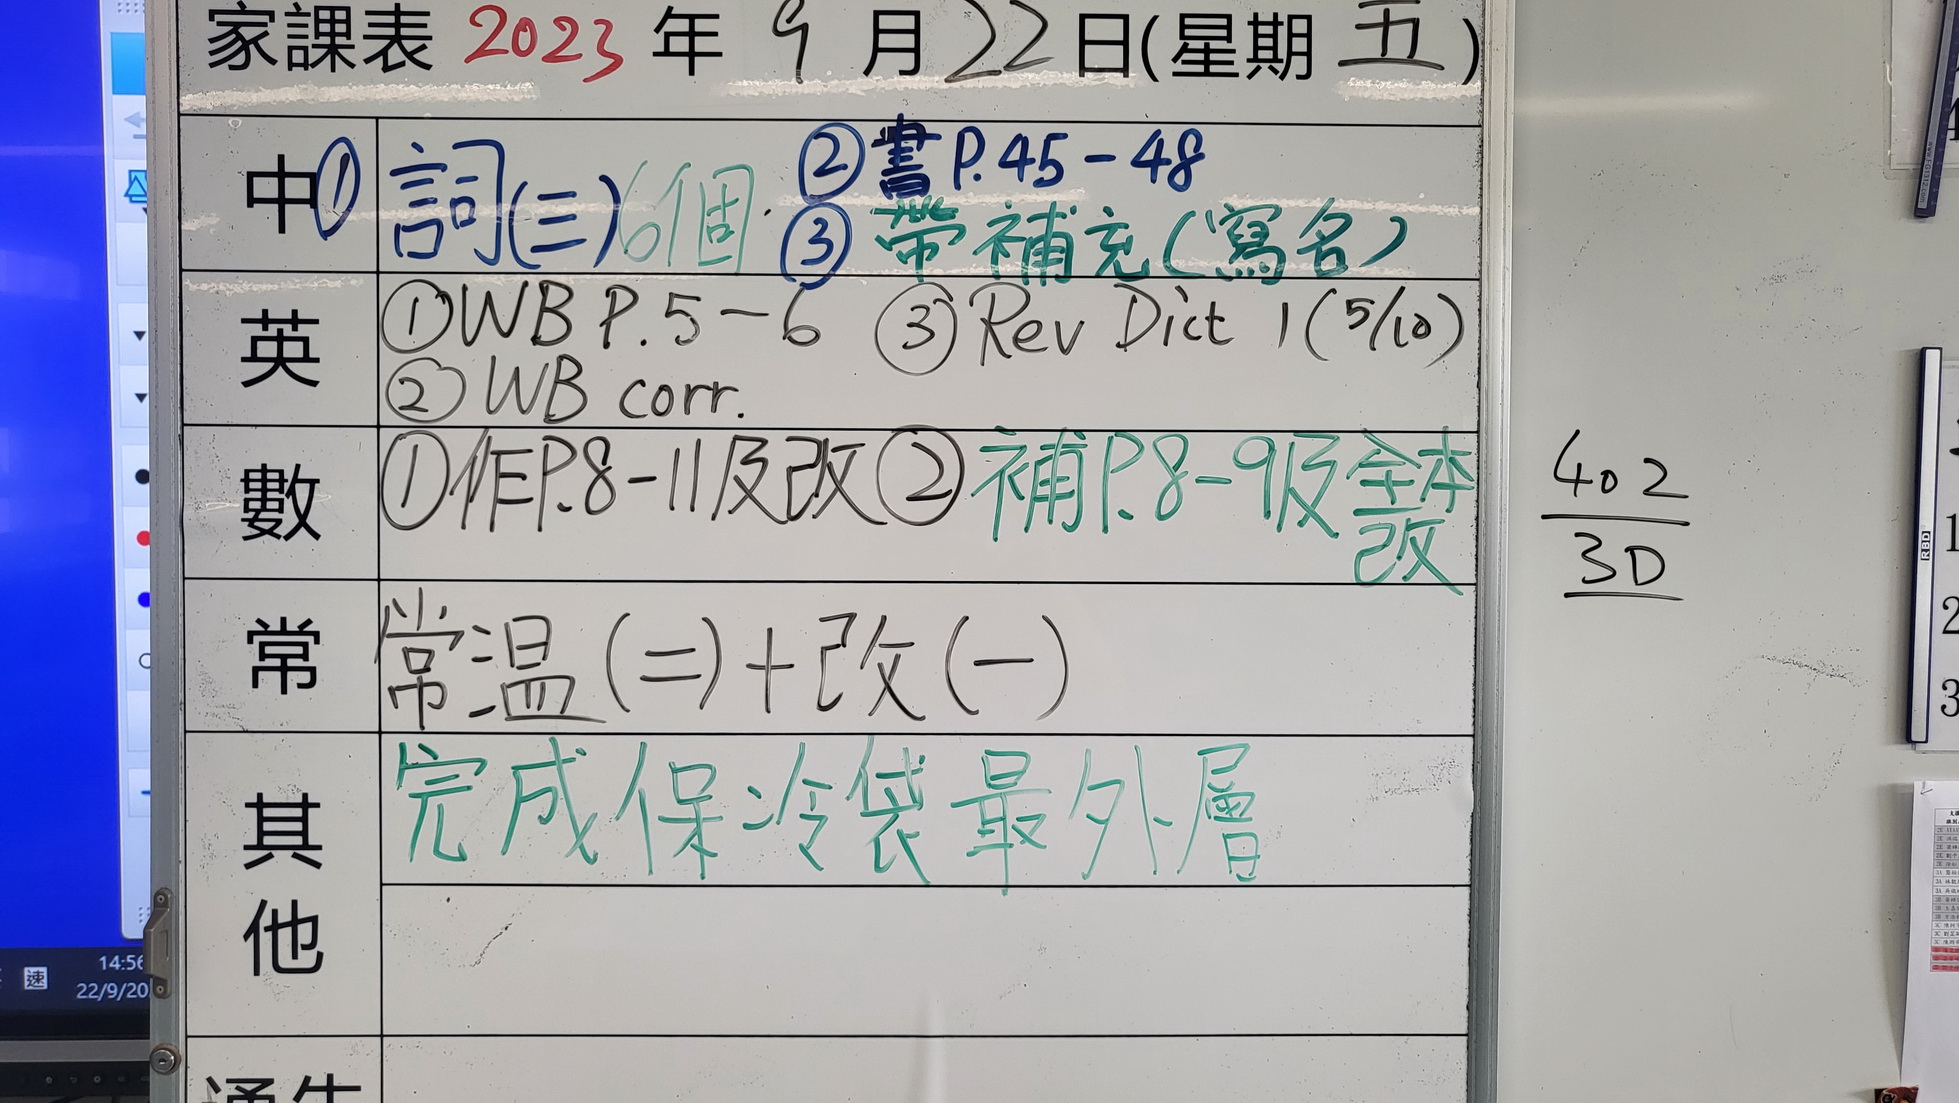 家課表 2023 年 9 月 22 日(星期 五)
中 ① 詞(三)6個 ② 書 P.45-48
③ 帶補充(寫名)
英 ① WB P.5-6 ③ Rev Dict 1 (5/10)
② WB corr.
數 ① 作P.8-11及改 ② 補P.8-9及全本改
常 常温(二)+改(一)
其他 完成保冷袋最外層
402
3D
速
14:56
22/9/20
RBD
1
2
3